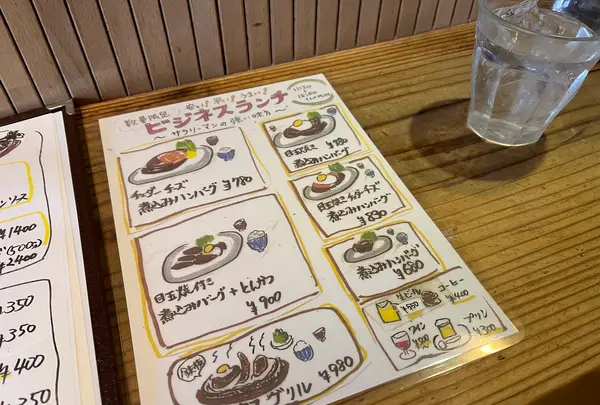 数量限定 安い! 早い! うまい!
ビジネスランチ
〜サラリーマンの強い味方〜
チェダーチーズ
煮込みハンバーグ ¥780
目玉焼き付き
煮込みハンバーグ+とんかつ
¥900
グリル ¥980
¥780
煮込みハンバーグ
煮込みハンバーグ
¥830
煮込みハンバーグ
¥680
生ビール
コーヒー
¥400
ワイン
プリン
¥300
ソース
¥1400
(500g)
¥2400
¥350
¥350
¥400
¥400